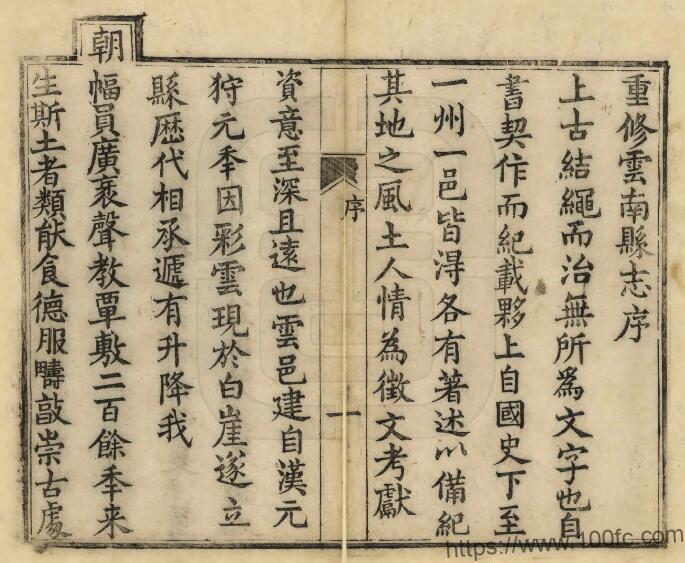 重修雲南縣志序
上古結繩而治無所為文字也自
書契作而紀載夥上自國史下至
一州一邑皆淂各有著述以備紀
其地之風土人情為徵文考獻
序
一
資意至深且遠也雲邑建自漢元
狩元秊因彩雲現於白崖遂立
縣歷代相承遞有升降我
朝幅員廣袤聲教覃敷二百餘秊来
生斯土者類能食德服疇敲崇古處
https://www.100fc.com